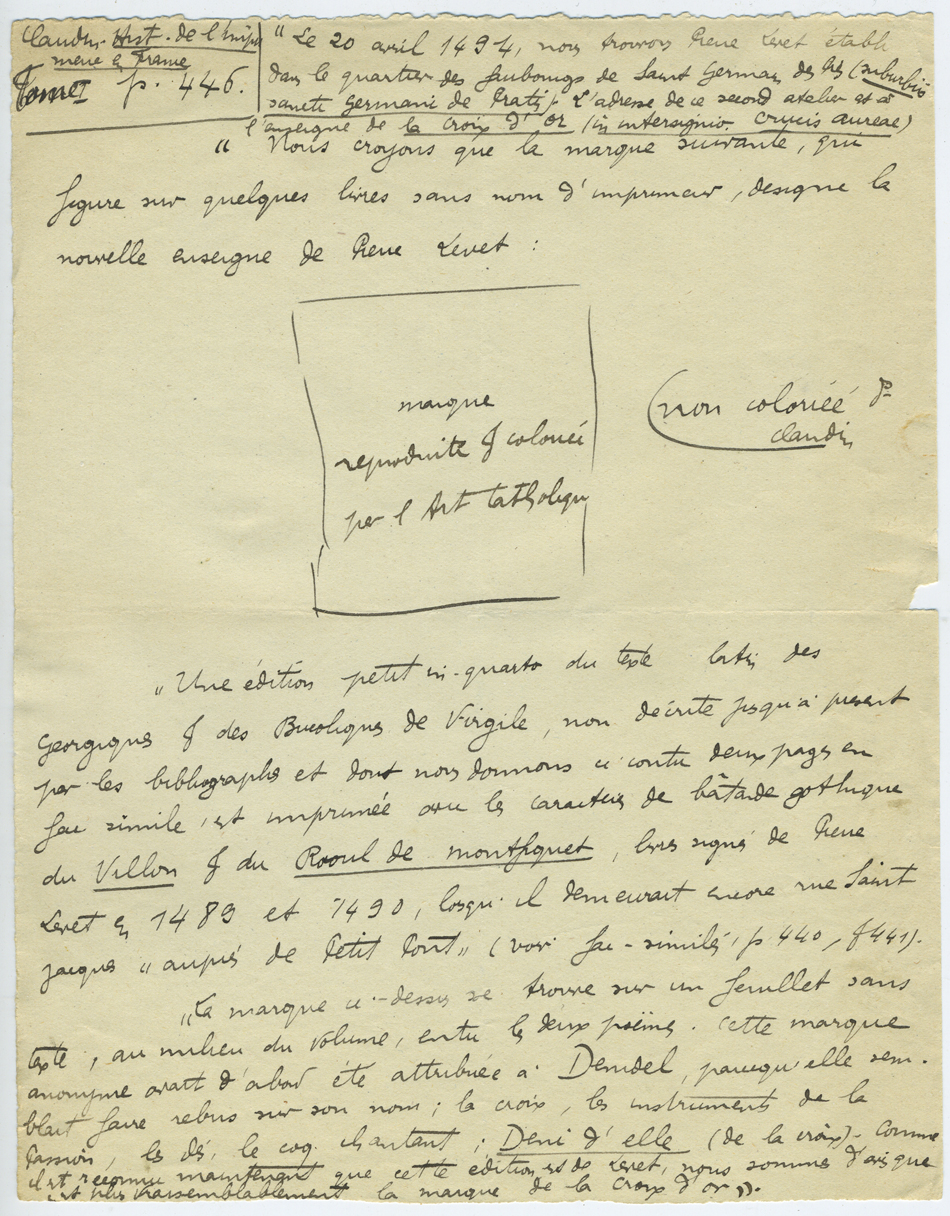 Claudin. Hist. de l'impri
merie en France
Tome I p. 446.
" Le 20 avril 1494, nous trouvons Pierre Levet établi
dans le quartier des faubourgs de Saint Germain des Prés (suburbio
sancti Germani de Pratis). L'adresse de ce second atelier est à
l'enseigne de la croix d'or (in intersignio crucis aureae)
" Nous croyons que la marque suivante, qui
figure sur quelques livres sans nom d'imprimeur, designe la
nouvelle enseigne de Pierre Levet :
marque
reproduite & coloriée
par l'Art Catholique
(non coloriée ds
Claudin
" Une édition petit in-quarto du texte latin des
Georgiques & des Bucoliques de Virgile, non décrite jusqu'à présent
par les bibliographes et dont nous donnons ci contre deux pages en
fac simile est imprimée avec les caractères de bâtarde gothique
du Villon & du Raoul de Montfiquet, livres signés de Pierre
Levet en 1489 et 1490, lorsqu'il demeurait encore rue Saint
Jacques " auprès de Petit Pont" (voir fac-similés, p 440, & 441).
" La marque ci-dessus se trouve sur un feuillet sans
texte, au milieu du volume, entre les deux poëmes. Cette marque
anonyme avait d'abord été attribuée à Denidel, parcequ'elle sem-
blait faire rebus sur son nom ; la croix, les instruments de la
Passion, les dés, le coq chantant ; Deni d'elle (de la croix) - Comme
il est reconnu maintenant que cette édition est de Levet, nous sommes d'avis que
c'est plus vraisemblablement la marque de la Croix d'or ».